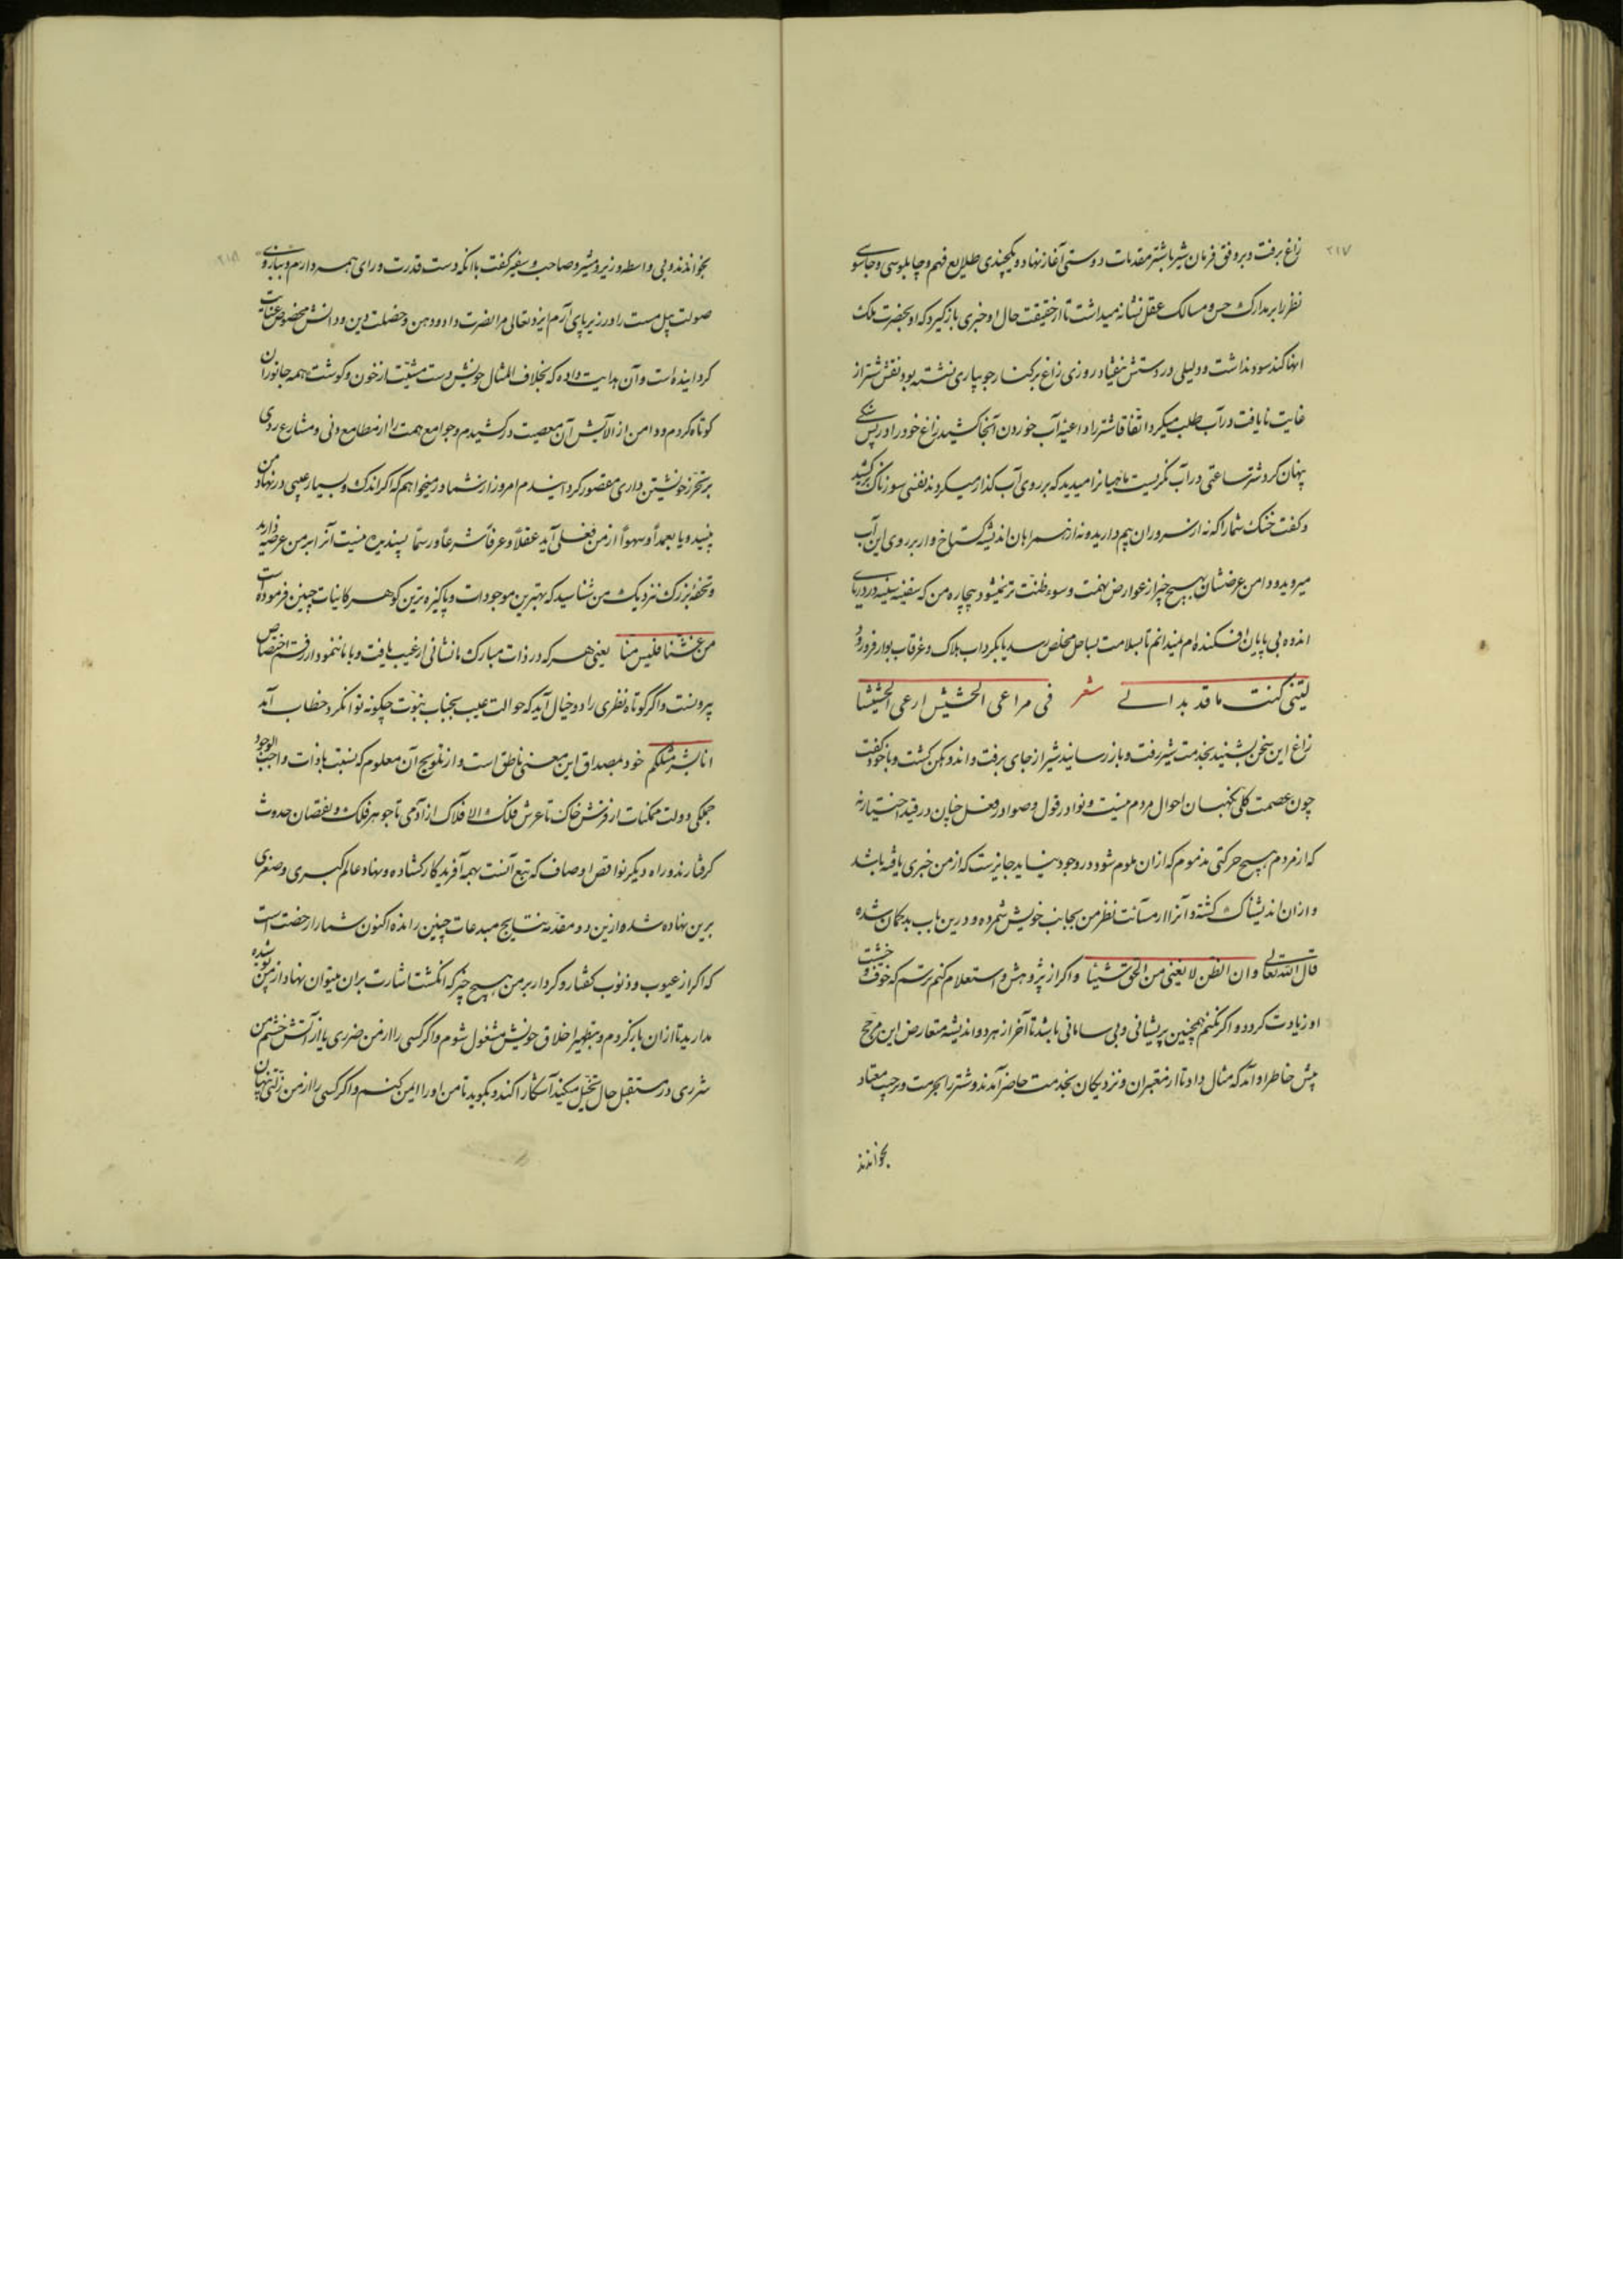 ۲۱۷
زاغ برفت و بر وفق فرمان شیر با شتر مقدمات دوستی آغاز نهاد و یکچندی طلایع فهم و چابلوسی و جاسوسی
نظر را بر مدارک حس و مسالک عقل نشانه میداشت تا از حقیقت حال او خبری بازگیرد که او بحضرت ملک
انها کند سود نداشت و دلیلی در دستش نیفتاد روزی زاغ بر کنار جویباری نشسته بود نقش شتر از
غایت نایافت در آب طلب میکرد اتفاقا شتر را داعیه آب خوردن آنجا کشید زاغ خود را در پس سنگی
پنهان کرد شتر ساعتی در آب نگریست ماهیانرا میدید که بر روی آب گذار میکردند نفسی سوزناک برکشید
و گفت خنک شما را که نه از سروران بیم دارید و نه از همراهان اندیشه گستاخ وار بر روی این آب
میروید و دامن عرضتان بهیچ چیز از عوارض تهمت و سوء ظنت تر نمیشود بیچاره من که سفینه سینه در دریای
اندوه بی پایان افکنده‌ام نمیدانم تا بسلامت بساحل مخلص رسد یا بگرداب هلاک و غرقاب بوار فرو رود
لیتنی کنت ما قد بدا لی شعر فی مراعی الحشیش ارعی الحشیشا
زاغ این سخن بشنید بخدمت شیر رفت و باز رسانید شیر از جای برفت و اندوهگن گشت و با خود گفت
چون عصمت کلی نگهبان احوال مردم نیست و نوادر قول و صوادر فعل چنان در قید اختیار نه
که از مردم هیچ حرکتی مذموم که ازان ملوم شود در وجود نیاید جایزست که از من خبری یافته باشد
و ازان اندیشناک گشته و آنرا از مسآت نظر من بجانب خویش شمرده و درین باب بدگمان شده
قال الله تعالی وان الظن لا یغنی من الحق شیئا و اگر از پژوهش و استعلام کنم ترسم که خوف و خشیت
او زیادت گردد و اگر نکنم همچنین پریشانی و بی سامانی باشد تا آخر از هر دو اندیشه متعارض این مرجح
پیش خاطر او آمد که مثال داد تا از معتبران و نزدیکان بخدمت حاضر آمدند و شتر را بحرمت و ترحیب معتاد
بخواندند
۲۱۸
بخواندند و بی واسطه وزیر و مشیر و صاحب و سفیر گفت با آنکه دست قدرت ورای همه دارم و بازوی
صولت پیل مست را در زیر پای آرم ایزد تعالی مرا نصرت داد و دهن و خصلت دین و دانش مخصوص عنایت
گردانیده است و آن هدایت داده که بخلاف امثال خویش دست مشیت از خون و گوشت همه جانوران
کوتاه کردم و دامن از آلایش آن معصیت درکشیدم و جوامع همت را از مطامع دنی و مشارع ردی
بر تحرز خویشتن داری مقصور گردانیدم امروز از شما در میخواهم که اگر اندک و بسیار عیبی در نهاد من
بینید و یا بعمدا و سهوا از من فعلی آید عقلا و عرفا شرعا و رسما پسندیده نیست آنرا بر من عرضه دارید
و تحفه بزرگ نزدیک من شناسید که بهترین موجودات و پاکیزه ترین گوهر کانیات چنین فرموده است
من غشنا فلیس منا یعنی هر که در ذات مبارک ما نشانی از عیب یافت و با ما ننمود از رقم اختصاص
بیرونست و اگر کوتاه نظری را در خیال آید که حوالت عیب بجناب نبوت چگونه توان کرد خطاب آمد
انا بشر مثلکم خود بمصداق این معنی ناطق است و از تلویح آن معلوم که نسبت با ذات واجب الوجود
جملگی دولت ممکنات از فرش خاک تا عرش فلک الافلاک از آدمی تا جوهر فلک بنقصان حدوث
گرفتارند و راه دیگر نواقص اوصاف که تبع آنست بهمه آفریدگار گشاده و نهاد عالم کبری و صغری
برین نهاده شده و ازین دو مقدمه نتایج مبدعات چنین رانده اکنون شما را رخصت است
که اگر از عیوب و ذنوب گفتار و کردار بر من هیچ چیز که انگشت اشارت بران میتوان نهاد از من پوشیده
مدارید تا ازان باز گردم و بتطهیر اخلاق خویش مشغول شوم و اگر کسی را از من ضرری یا از آتش خشم من
شرری در مستقبل حال تخیل میکند آشکارا کند و بگوید تا من او را ایمن کنم و اگر کسی را از من زلتی پنهان